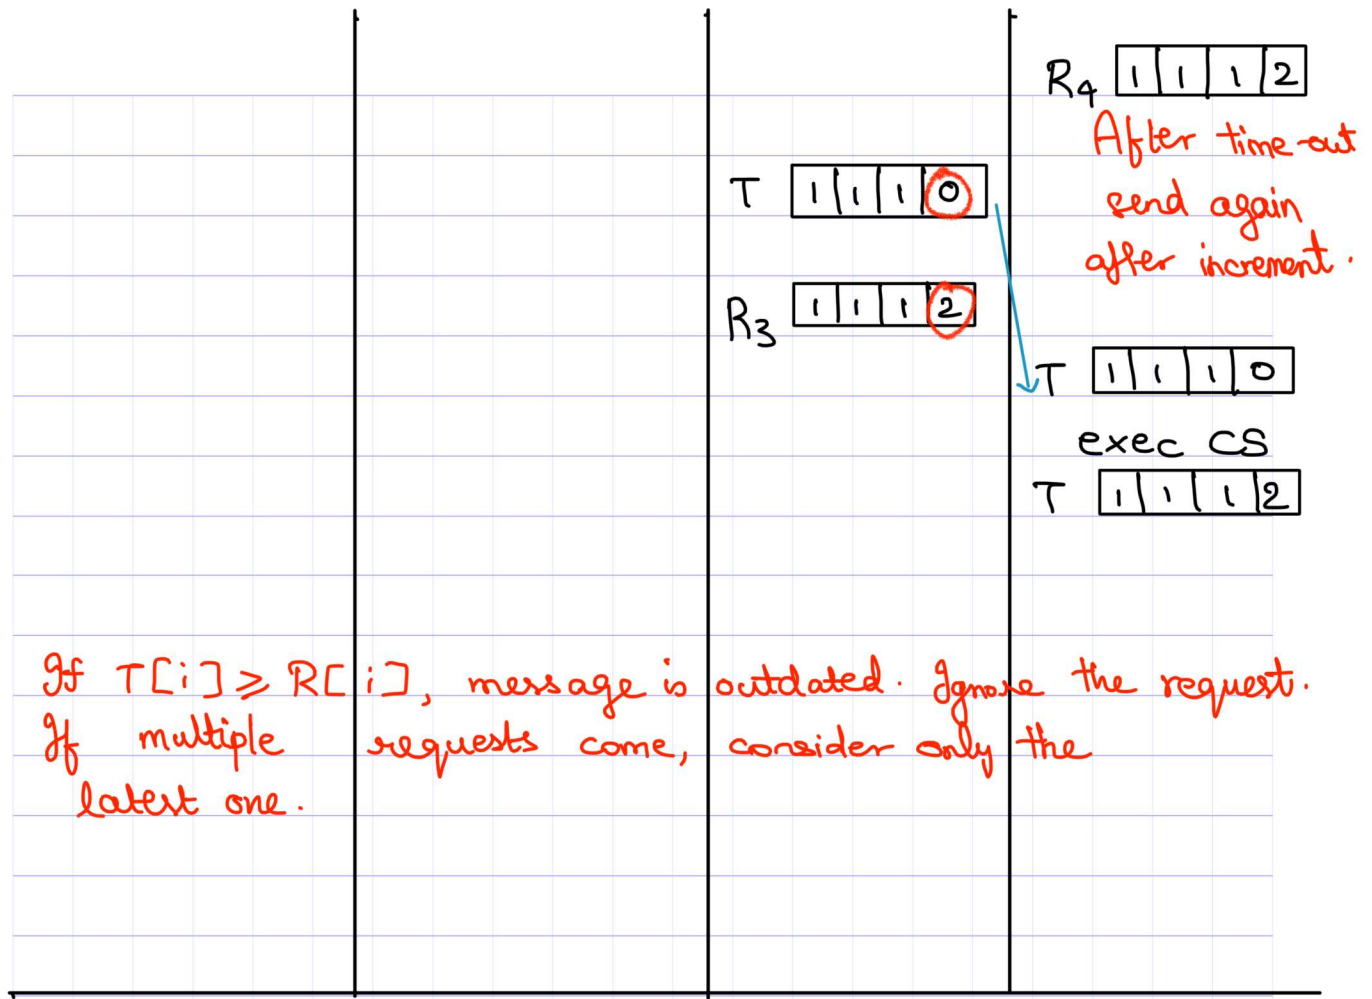 R4 1 1 1 2
After time-out
T 1 1 1 0
send again
after increment.
R3 1 1 1 2
T 1 1 1 0
exec CS
T 1 1 1 2
If T[i] ⩾ R[i], message is outdated. Ignore the request.
If multiple requests come, consider only the
latest one.